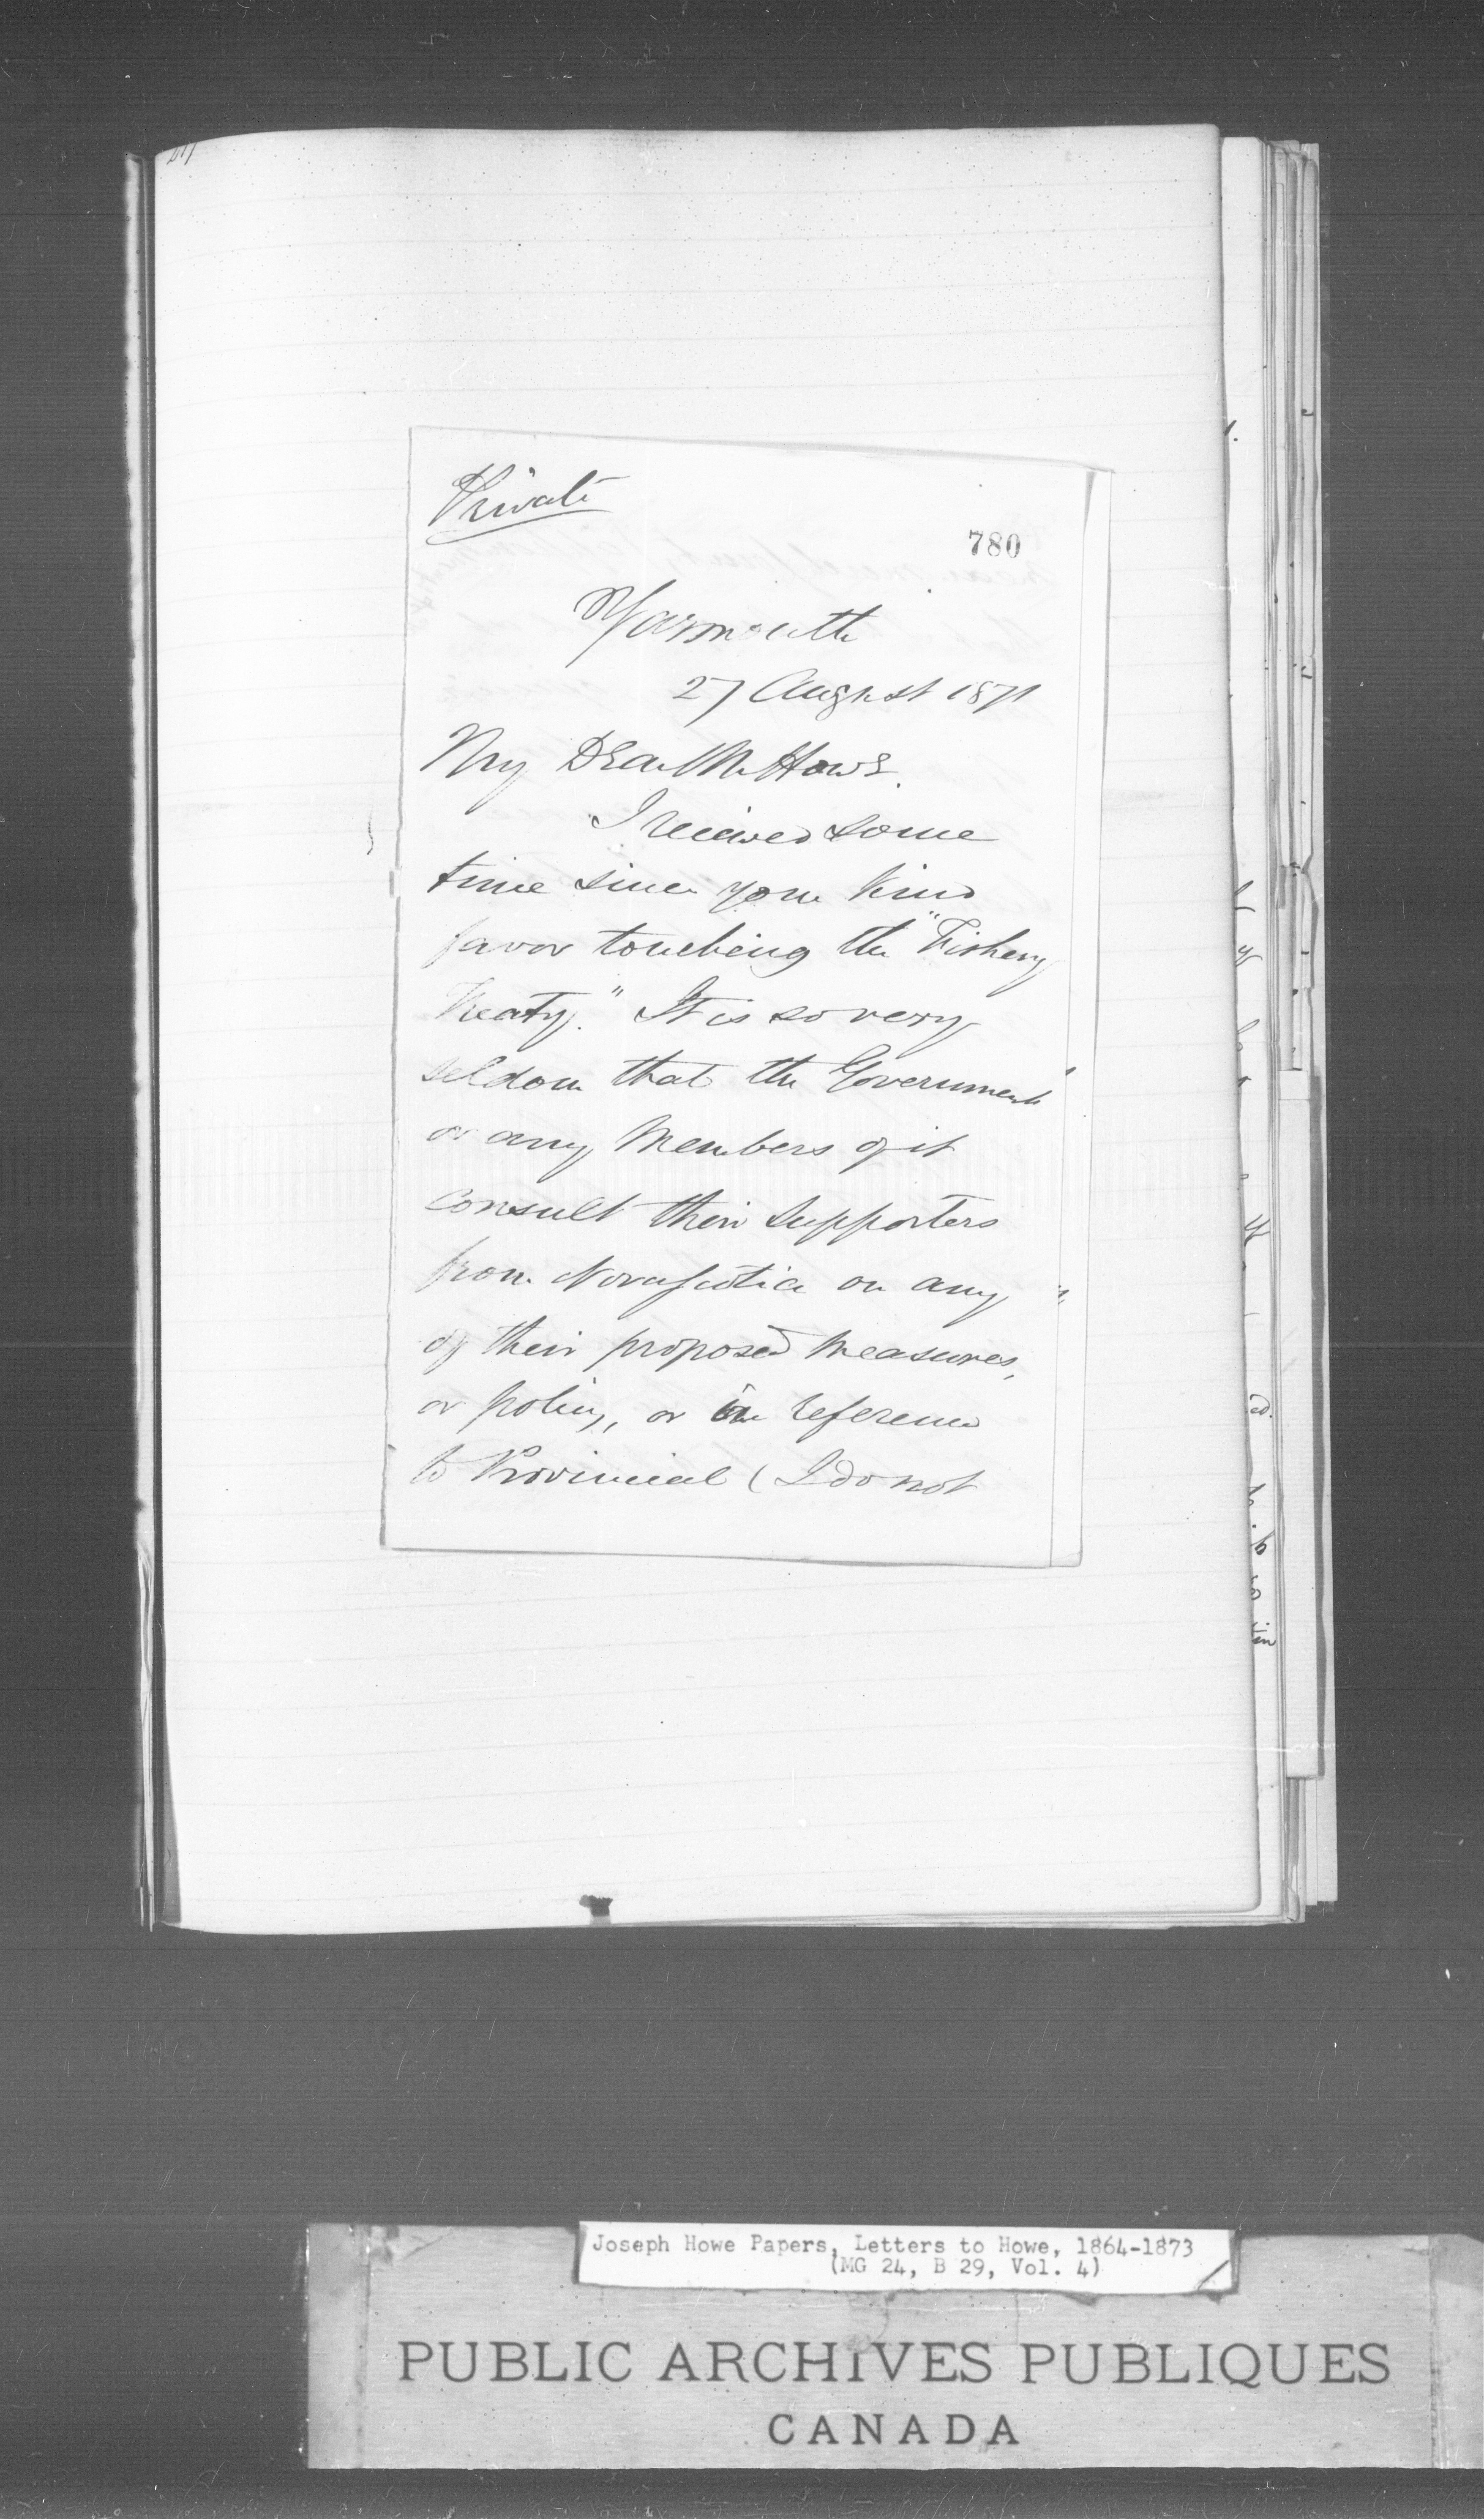 Private
780
Yarmouth
27 August 1871
My Dear Mr Howe.
I received some
time since your kind
favor touching the "Fishery
Treaty." It is so very
seldom that the Government
or any Members of it
consult their Supporters
from Nova Scotia on any
of their proposed Measures,
or policy, or in reference
to Provincial (I do not
Joseph Howe Papers, Letters to Howe, 1864-1873
(MG 24, B 29, Vol. 4)
PUBLIC ARCHIVES PUBLIQUES
CANADA